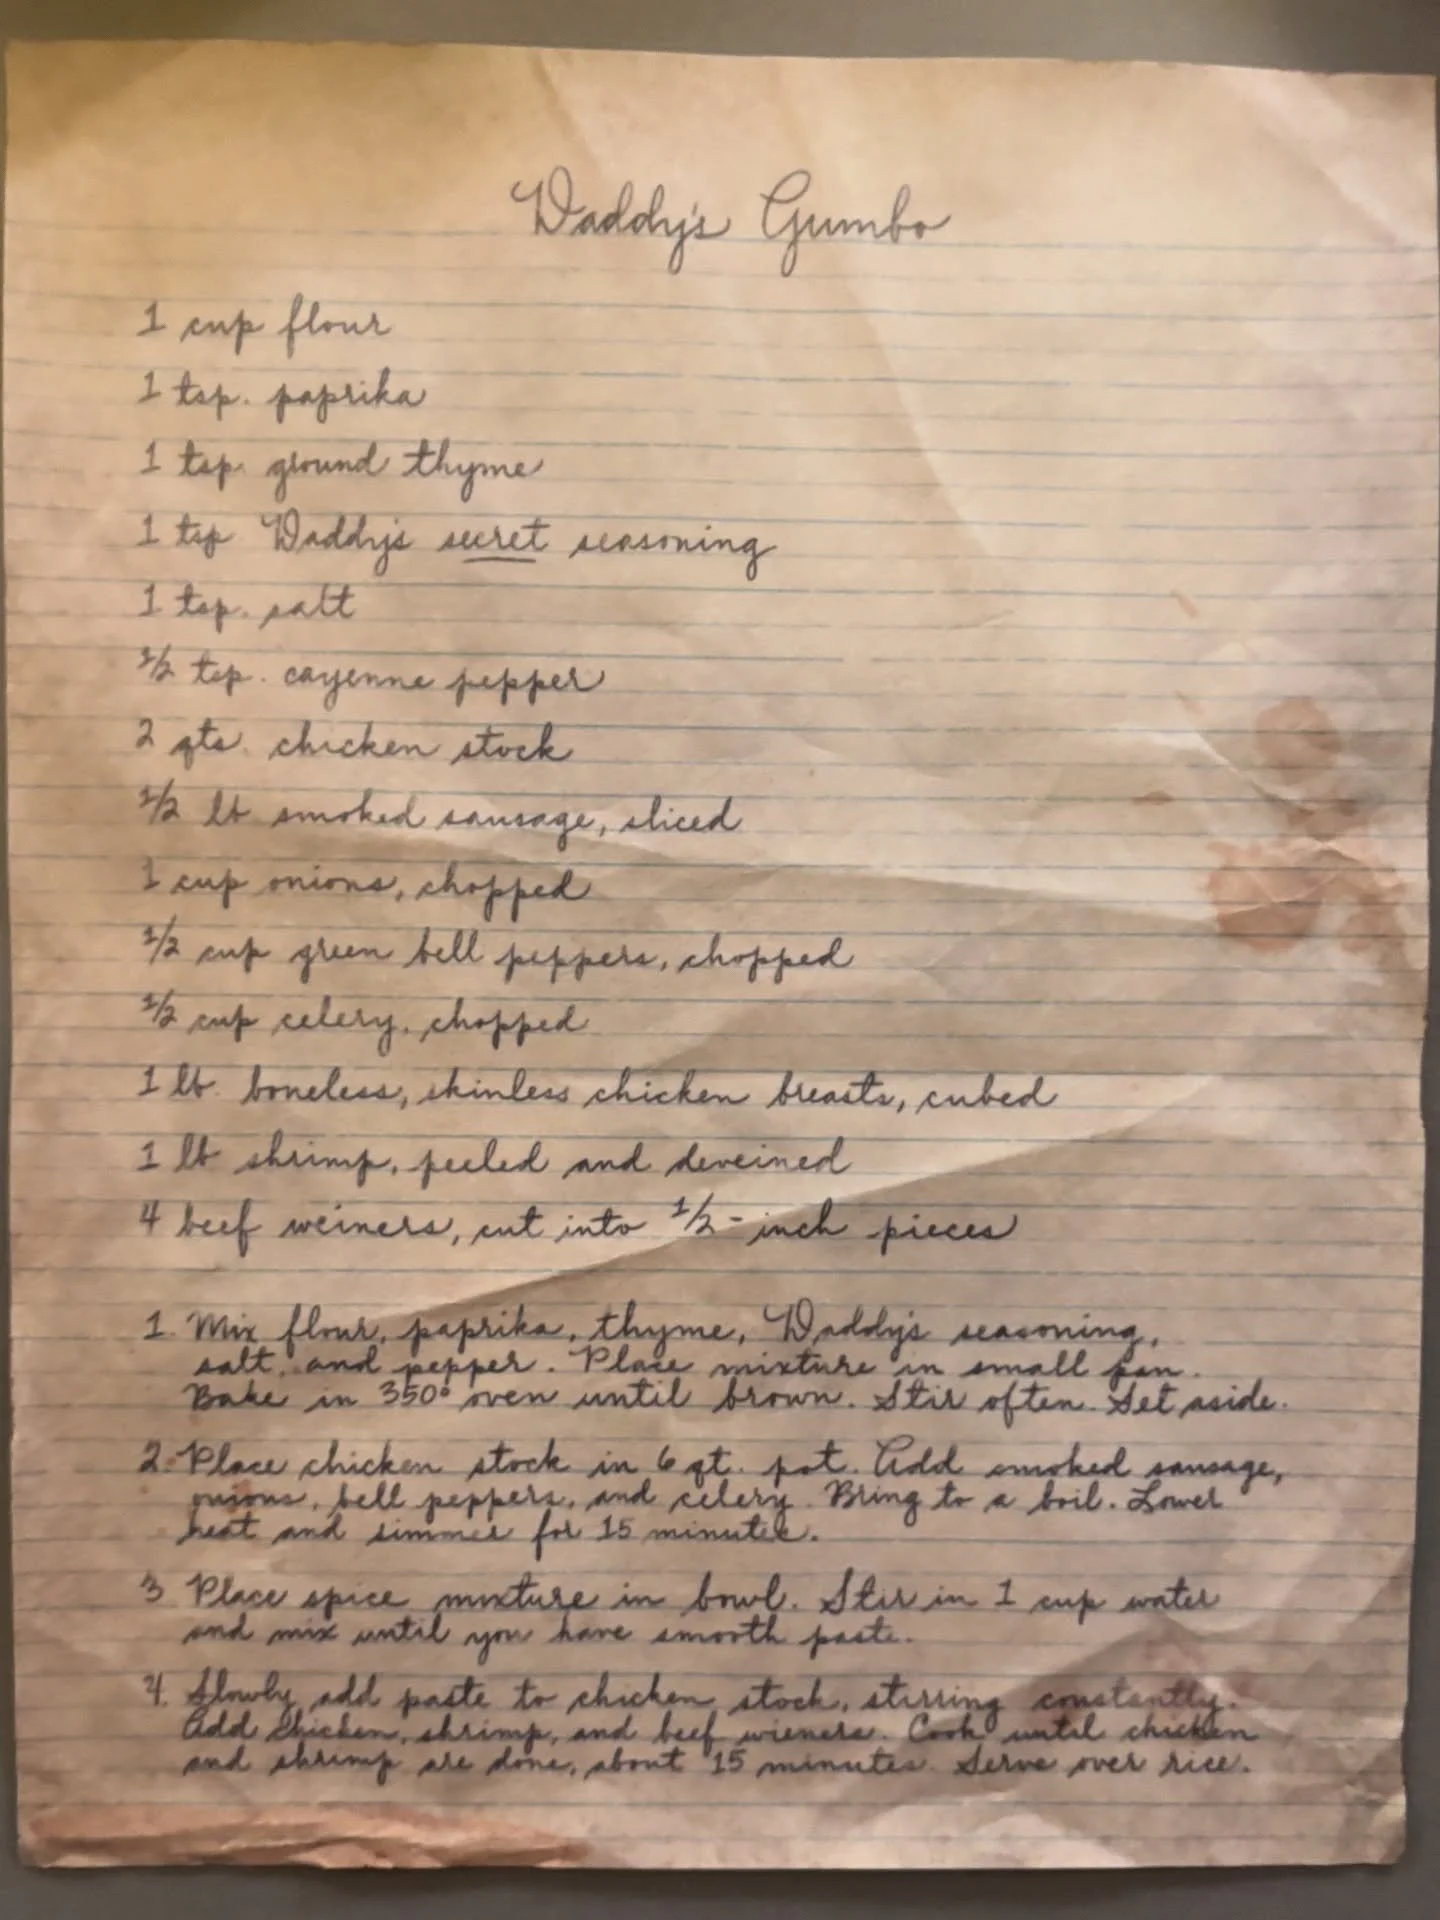 Daddy's Gumbo
1 cup flour
1 tsp. paprika
1 tsp. ground thyme
1 tsp Daddy's secret seasoning
1 tsp. salt
1/2 tsp. cayenne pepper
2 qts. chicken stock
1/2 lb smoked sausage, sliced
1 cup onions, chopped
1/2 cup green bell peppers, chopped
1/2 cup celery, chopped
1 lb. boneless, skinless chicken breasts, cubed
1 lb shrimp, peeled and deveined
4 beef weiners, cut into 1/2-inch pieces
1. Mix flour, paprika, thyme, Daddy's seasoning,
salt, and pepper. Place mixture in small pan.
Bake in 350° oven until brown. Stir often. Set aside.
2. Place chicken stock in 6 qt. pot. Add smoked sausage,
onions, bell peppers, and celery. Bring to a boil. Lower
heat and simmer for 15 minutes.
3 Place spice mixture in bowl. Stir in 1 cup water
and mix until you have smooth paste.
4. Slowly add paste to chicken stock, stirring constantly.
Add chicken, shrimp, and beef wieners. Cook until chicken
and shrimp are done, about 15 minutes. Serve over rice.